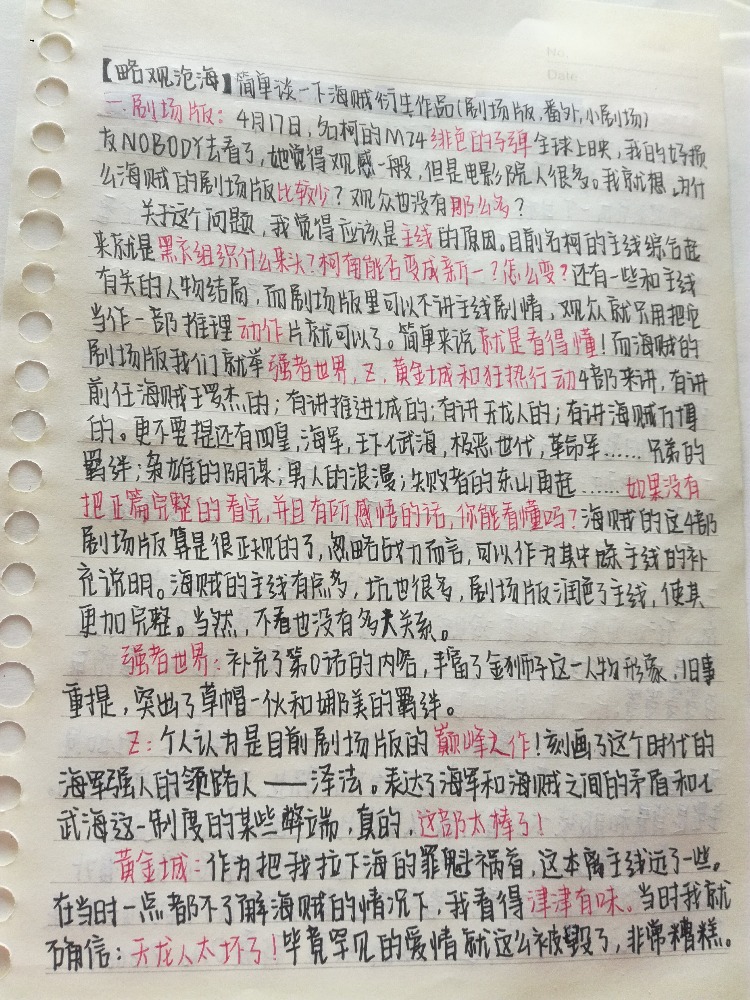 No.
Date
【略观沧海】简单谈一下海贼衍生作品(剧场版,番外,小剧场)
一.剧场版:4月17日,名柯的M24绯色的子弹全球上映,我的好损
友NOBODY去看了,她觉得观感一般,但是电影院人很多。我就想,为什
么海贼的剧场版比较少?观众也没有那么多?
关于这个问题,我觉得应该是主线的原因。目前名柯的主线综合起
来就是黑衣组织什么来头?柯南能否变成新一?怎么变?还有一些和主线
有关的人物结局,而剧场版里可以不讲主线剧情,观众就只用把它
当作一部推理动作片就可以了。简单来说就是看得懂!而海贼的
剧场版我们就举强者世界,Z,黄金城和狂热行动4部来讲,有讲
前任海贼王罗杰的;有讲推进城的;有讲天龙人的;有讲海贼万博
的。更不要提还有四皇,海军,王下七武海,极恶世代,革命军……兄弟的
羁绊;枭雄的阴谋;男人的浪漫;失败者的东山再起……如果没有
把正篇完整的看完,并且有所感悟的话,你能看懂吗?海贼的这4部
剧场版算是很正规的了,忽略战力而言,可以作为其中原主线的补
充说明。海贼的主线有点多,坑也很多,剧场版润色了主线,使其
更加完整。当然,不看也没有多大关系。
强者世界:补充了第0话的内容,丰富了金狮子这一人物形象,旧事
重提,突出了草帽一伙和娜美的羁绊。
Z:个人认为是目前剧场版的巅峰之作!刻画了这个时代的
海军强人的领路人——泽法。表达了海军和海贼之间的矛盾和七
武海这一制度的某些弊端,真的,这部太棒了!
黄金城:作为把我拉下海的罪魁祸首,这本离主线远了一些。
在当时一点都不了解海贼的情况下,我看得津津有味。当时我就
确信:天龙人太坏了!毕竟罕见的爱情就这么被毁了,非常糟糕。